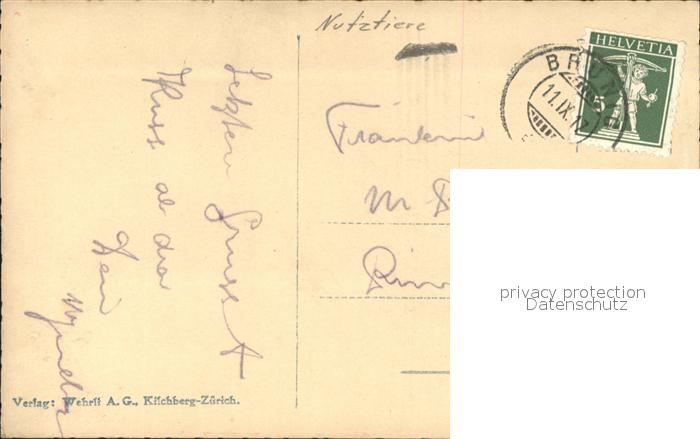 Nutztiere
HELVETIA
BRUN
11.IX.1
Letzten Gruss +
Kuss
Dein
Fräulein
M
privacy protection
Datenschutz
Verlag: Wehrli A.G., Kilchberg-Zürich.